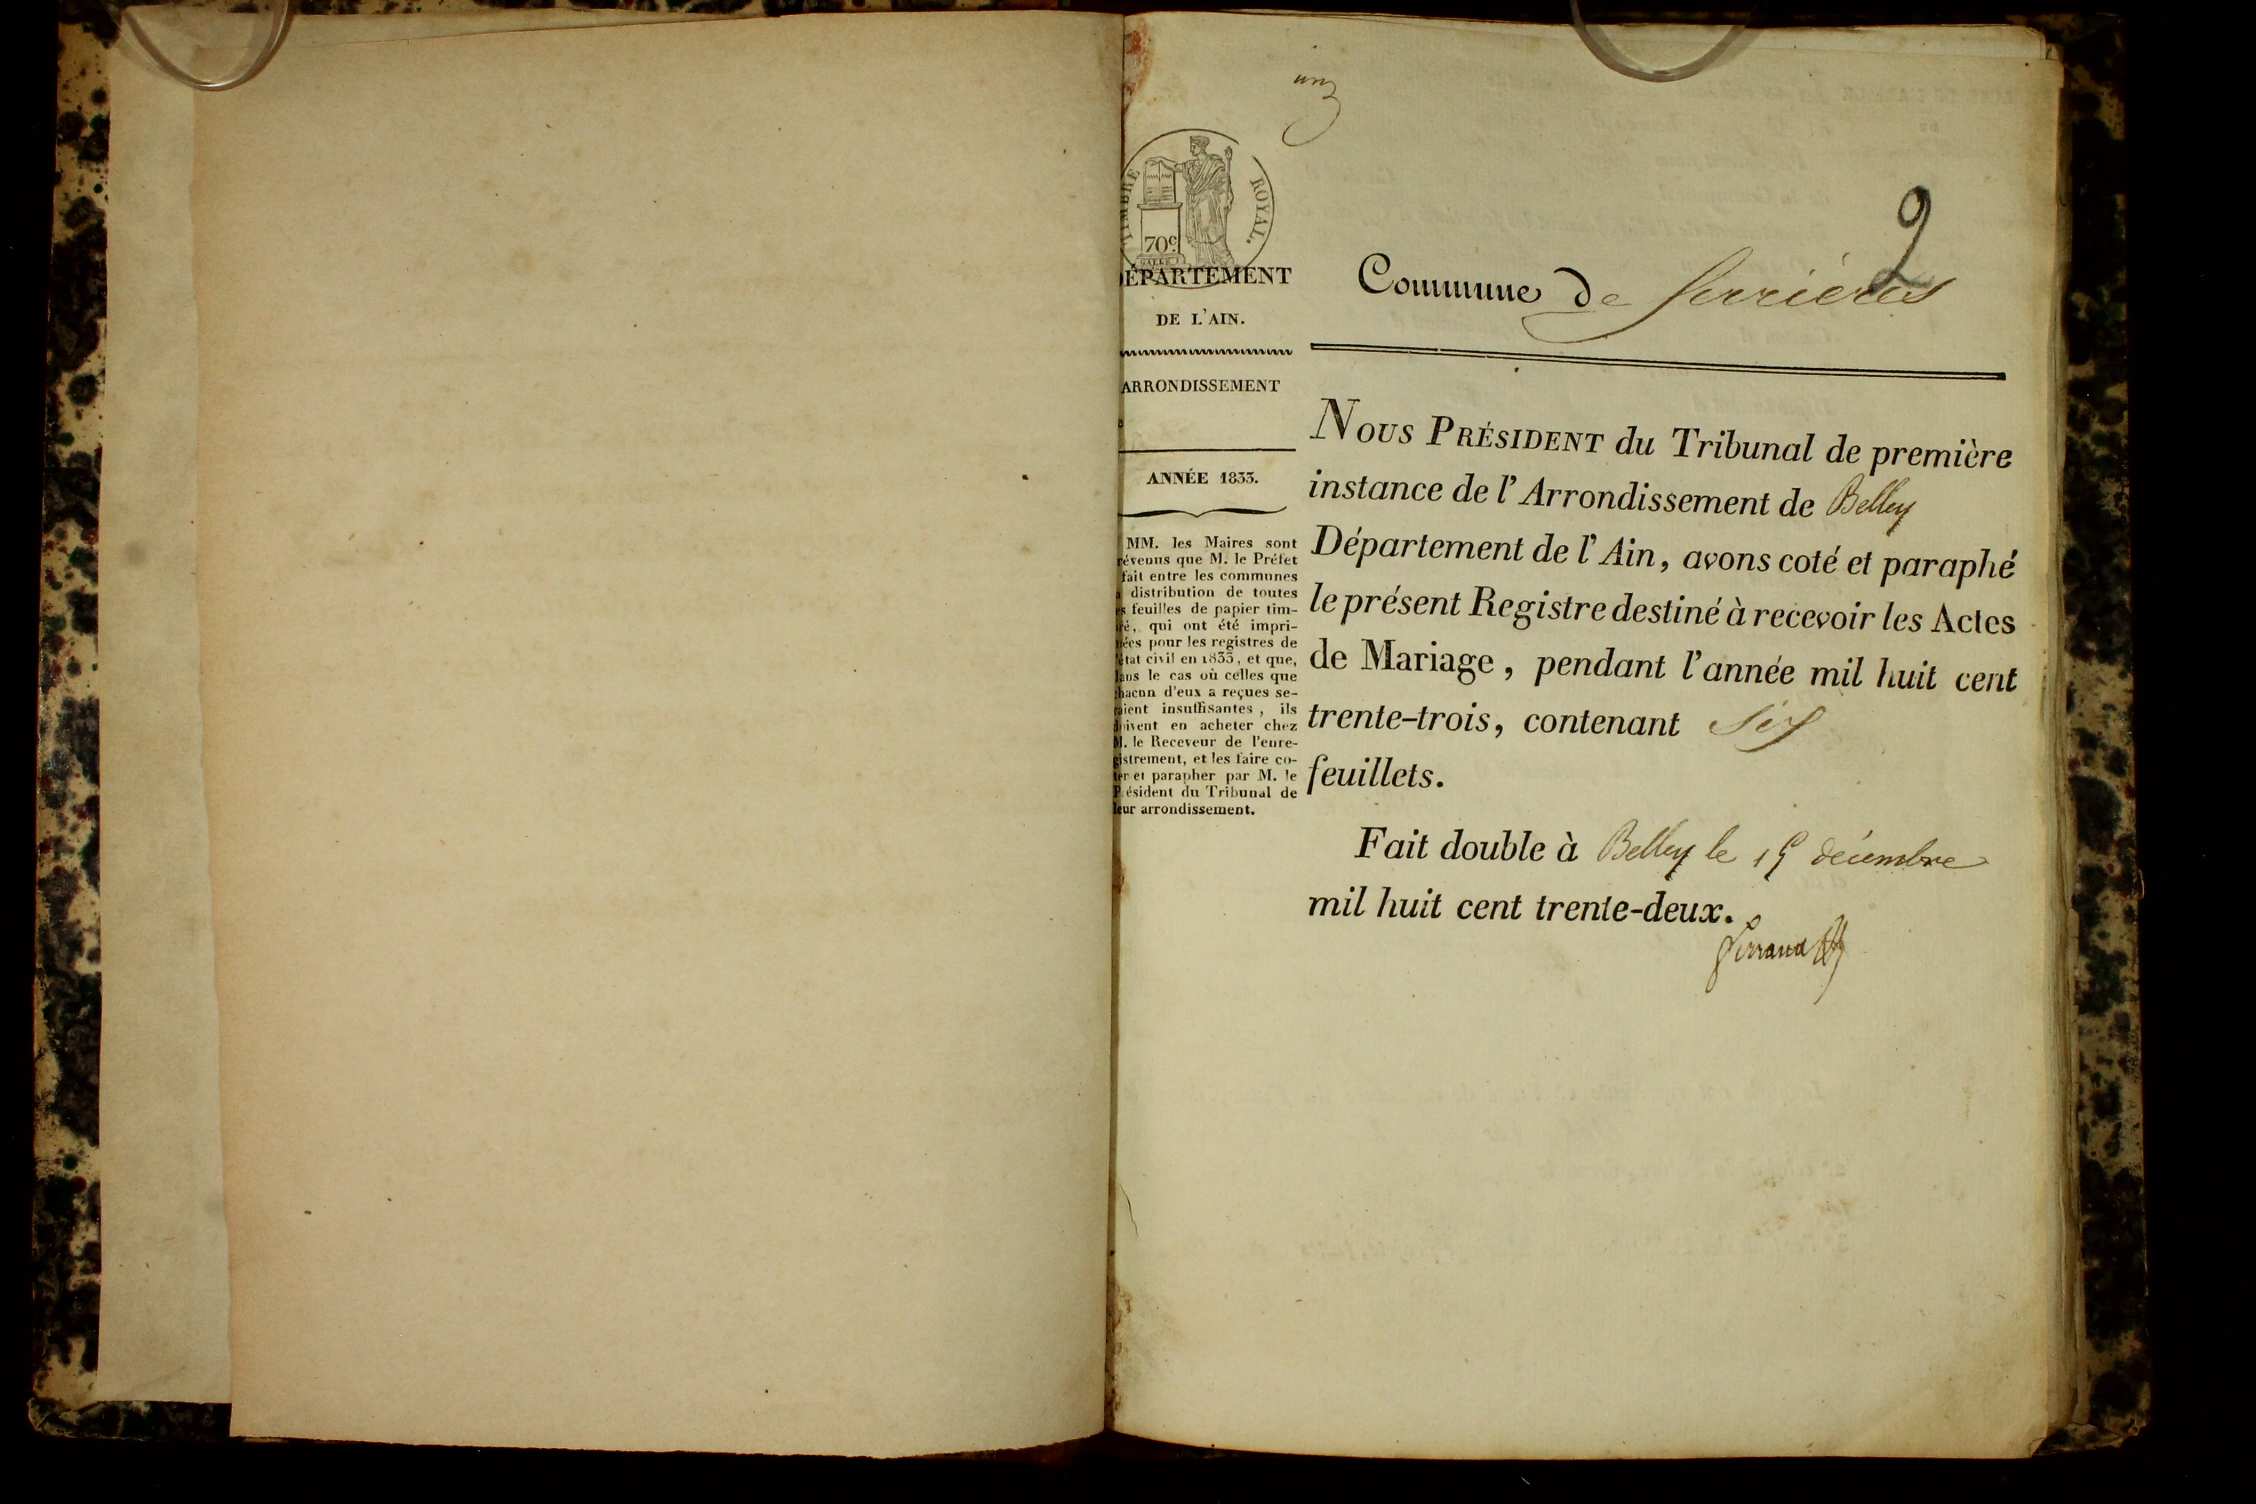 un
TIMBRE ROYAL.
70c
GALLE F
DÉPARTEMENT
DE L'AIN.
ARRONDISSEMENT
ANNÉE 1833.
MM. les Maires sont
révenus que M. le Préfet
fait entre les communes
a distribution de toutes
es feuilles de papier tim-
ré, qui ont été impri-
nées pour les registres de
état civil en 1833, et que,
dans le cas où celles que
chacun d'eux a reçues se-
raient insuffisantes, ils
doivent en acheter chez
M. le Receveur de l'enre-
gistrement, et les faire co-
ter et parapher par M. le
Président du Tribunal de
leur arrondissement.
2
Commune de Serrières
NOUS PRÉSIDENT du Tribunal de première
instance de l'Arrondissement de Belley
Département de l'Ain, avons coté et paraphé
le présent Registre destiné à recevoir les Actes
de Mariage, pendant l'année mil huit cent
trente-trois, contenant Six
feuillets.
Fait double à Belley le 15 décembre
mil huit cent trente-deux.